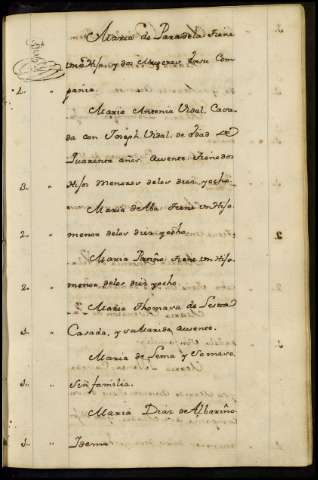 Maria de Paradela tiene
un Hijo, y dos Mugeres en su Com
1. pania.
Maria Antonia Vidal, Casa
da con Joseph Vidal, de edad de
Quarenta años, ausente, tiene dos
3. Hijos Menores de los diez y ocho.
Maria de Aba tiene un Hijo
2. menor de los diez y ocho.
Maria Patiño tiene un Hijo
2. menor de los diez y ocho.
Maria Thomasa de Lestra
1. Casada, y su Marido, ausente.
Maria de Lema y Romero,
1. Sin familia.
Maria Diaz de Albariño
1. Idem.